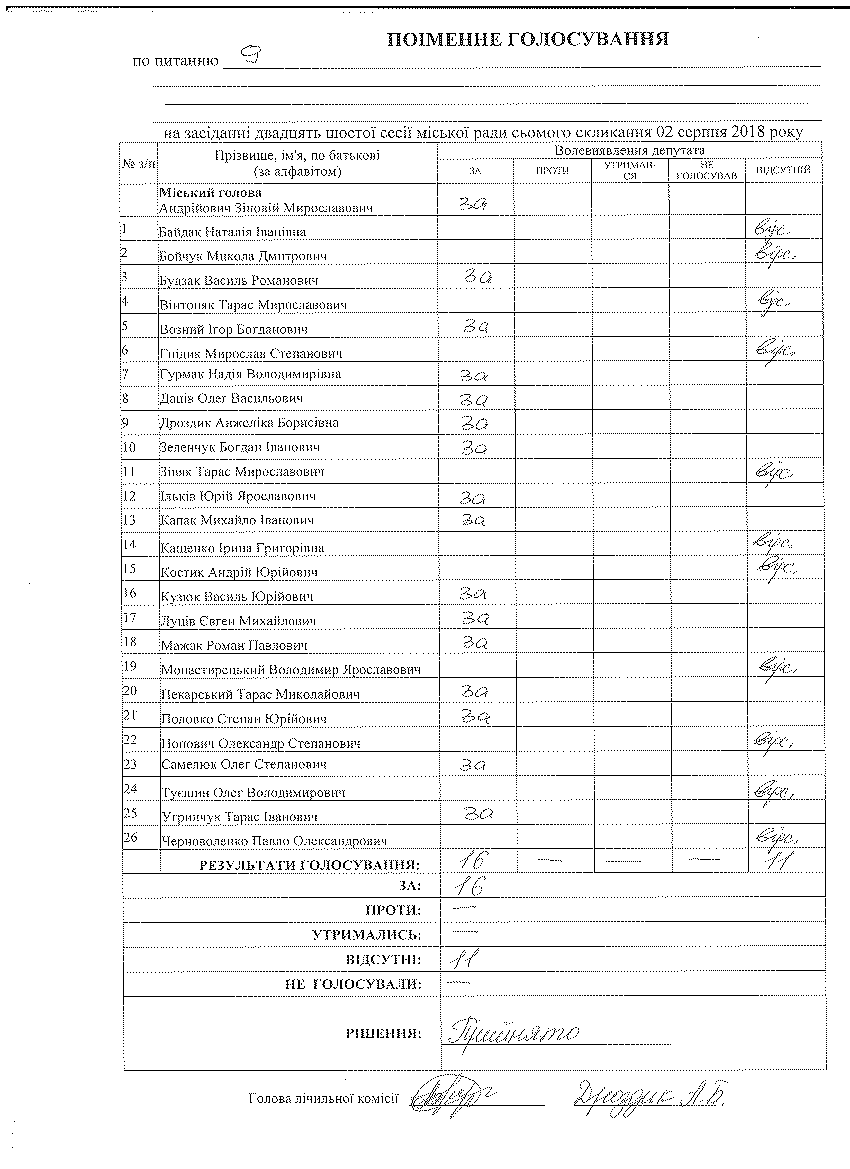 ПОІМЕННЕ ГОЛОСУВАННЯ
по питанню 9
на засіданні двадцять шостої сесії міської ради сьомого скликання 02 серпня 2018 року
№ з/п Прізвище, ім'я, по батькові (за алфавітом) Волевиявлення депутата
ЗА ПРОТИ УТРИМАВ-СЯ НЕ ГОЛОСУВАВ ВІДСУТНІЙ
Міський голова
Андрійович Зіновій Мирославович за
1 Байдак Наталія Іванівна відс.
2 Бойчук Микола Дмитрович відс.
3 Будзак Василь Романович за
4 Вінтоняк Тарас Мирославович відс.
5 Возний Ігор Богданович за
6 Гнідик Мирослав Степанович відс.
7 Гурмак Надія Володимирівна за
8 Даців Олег Васильович за
9 Дроздик Анжеліка Борисівна за
10 Зеленчук Богдан Іванович за
11 Зіняк Тарас Мирославович відс.
12 Ільків Юрій Ярославович за
13 Капак Михайло Іванович за
14 Кащенко Ірина Григорівна відс.
15 Костик Андрій Юрійович відс.
16 Кузюк Василь Юрійович за
17 Луців Євген Михайлович за
18 Мажак Роман Павлович за
19 Монастирецький Володимир Ярославович відс.
20 Пекарський Тарас Миколайович за
21 Половко Степан Юрійович за
22 Попович Олександр Степанович відс.
23 Самелюк Олег Степанович за
24 Олег Володимирович відс.
25 Угринчук Тарас Іванович за
26 Черноволенко Павло Олександрович відс.
РЕЗУЛЬТАТИ ГОЛОСУВАННЯ: 16 — — — 11
ЗА: 16
ПРОТИ: —
УТРИМАЛИСЬ: —
ВІДСУТНІ: 11
НЕ ГОЛОСУВАЛИ: —
РІШЕННЯ: Прийнято
Голова лічильної комісії Дроздик А.Б.